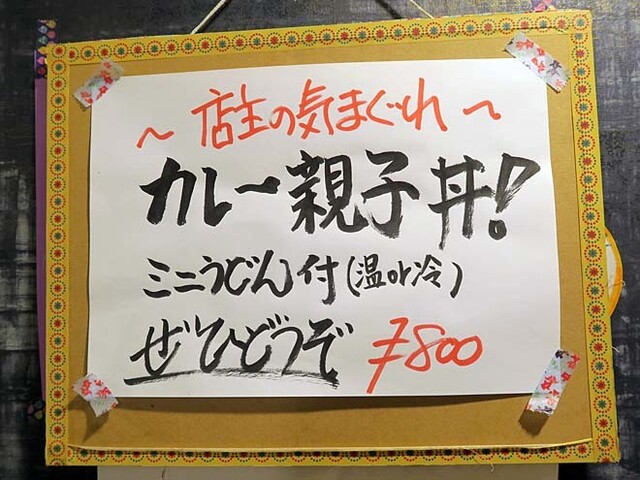 〜店主の気まぐれ〜
カレー親子丼!
ミニうどん付(温or冷)
ぜひどうぞ ¥800